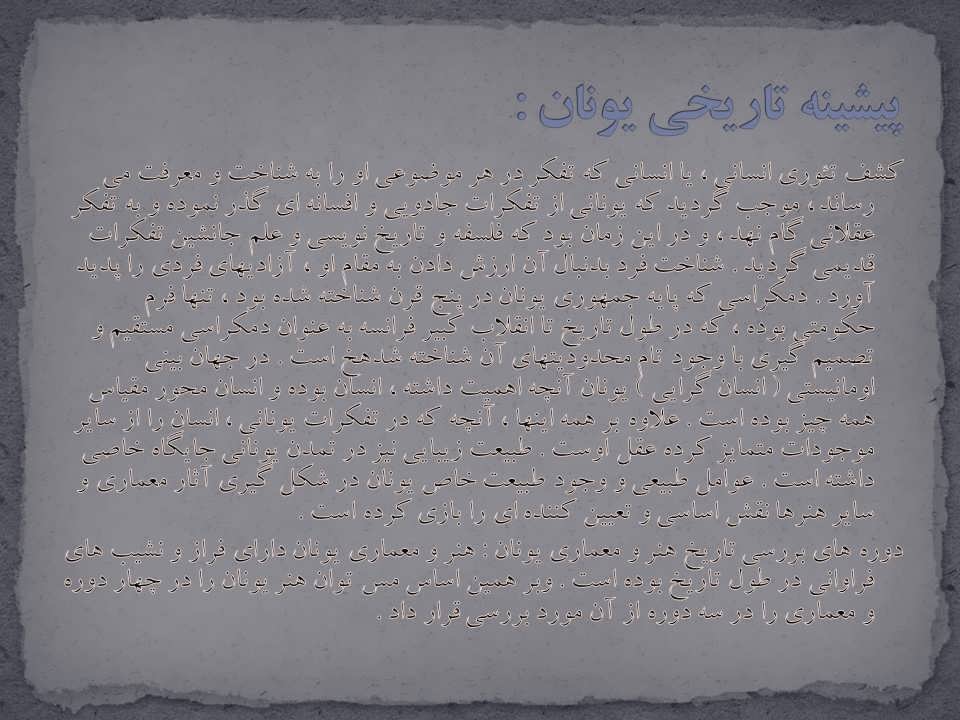 پیشینه تاریخی یونان :
کشف تئوری انسانی ، یا انسانی که تفکر در هر موضوعی او را به شناخت و معرفت می
رساند ، موجب گردید که یونانی از تفکرات جادویی و افسانه ای گذر نموده و به تفکر
عقلانی گام نهد ، و در این زمان بود که فلسفه و تاریخ نویسی و علم جانشین تفکرات
قدیمی گردید . شناخت فرد بدنبال آن ارزش دادن به مقام او ، آزادیهای فردی را پدید
آورد . دمکراسی که پایه جمهوری یونان در پنج قرن شناخته شده بود ، تنها فرم
حکومتی بوده ، که در طول تاریخ تا انقلاب کبیر فرانسه به عنوان دمکراسی مستقیم و
تصمیم گیری با وجود تام محدودیتهای آن شناخته شدهخ است . در جهان بینی
اومانیستی ( انسان گرایی ) یونان آنچه اهمیت داشته ، انسان بوده و انسان محور مقیاس
همه چیز بوده است . علاوه بر همه اینها ، آنچه که در تفکرات یونانی ، انسان را از سایر
موجودات متمایز کرده عقل اوست . طبیعت زیبایی نیز در تمدن یونانی جایگاه خاصی
داشته است . عوامل طبیعی و وجود طبیعت خاص یونان در شکل گیری آثار معماری و
سایر هنرها نقش اساسی و تعیین کننده ای را بازی کرده است .
دوره های بررسی تاریخ هنر و معماری یونان : هنر و معماری یونان دارای فراز و نشیب های
فراوانی در طول تاریخ بوده است . وبر همین اساس مس توان هنر یونان را در چهار دوره
و معماری را در سه دوره از آن مورد بررسی قرار داد .